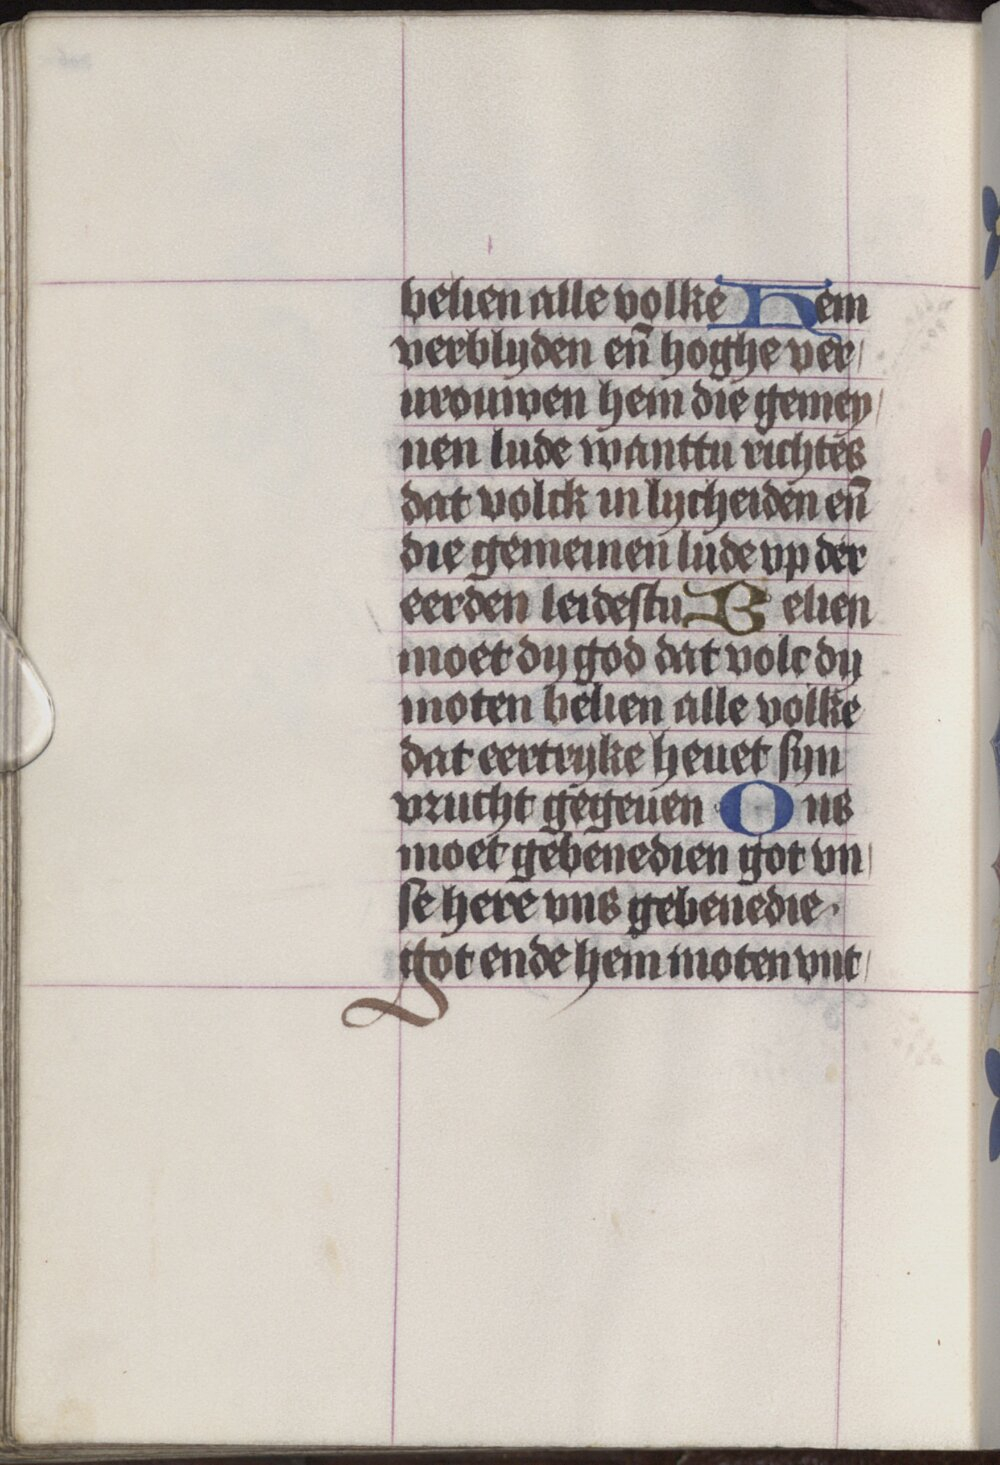 belien alle volke Hem
verblyden en̄ hoghe ver/
urouwen hem die gemey/
nen lude wanttu richtes
dat volck in lycheiden en̄
die gemeinen lude vp der
eerden leidestu Belien
moet dy god dat volc dy
moten belien alle volke
dat eertryke heuet syn
vrucht gegeuen Ons
moet gebenedien got vn/
se here vns gebenedie·
got ende hem moten vnt/